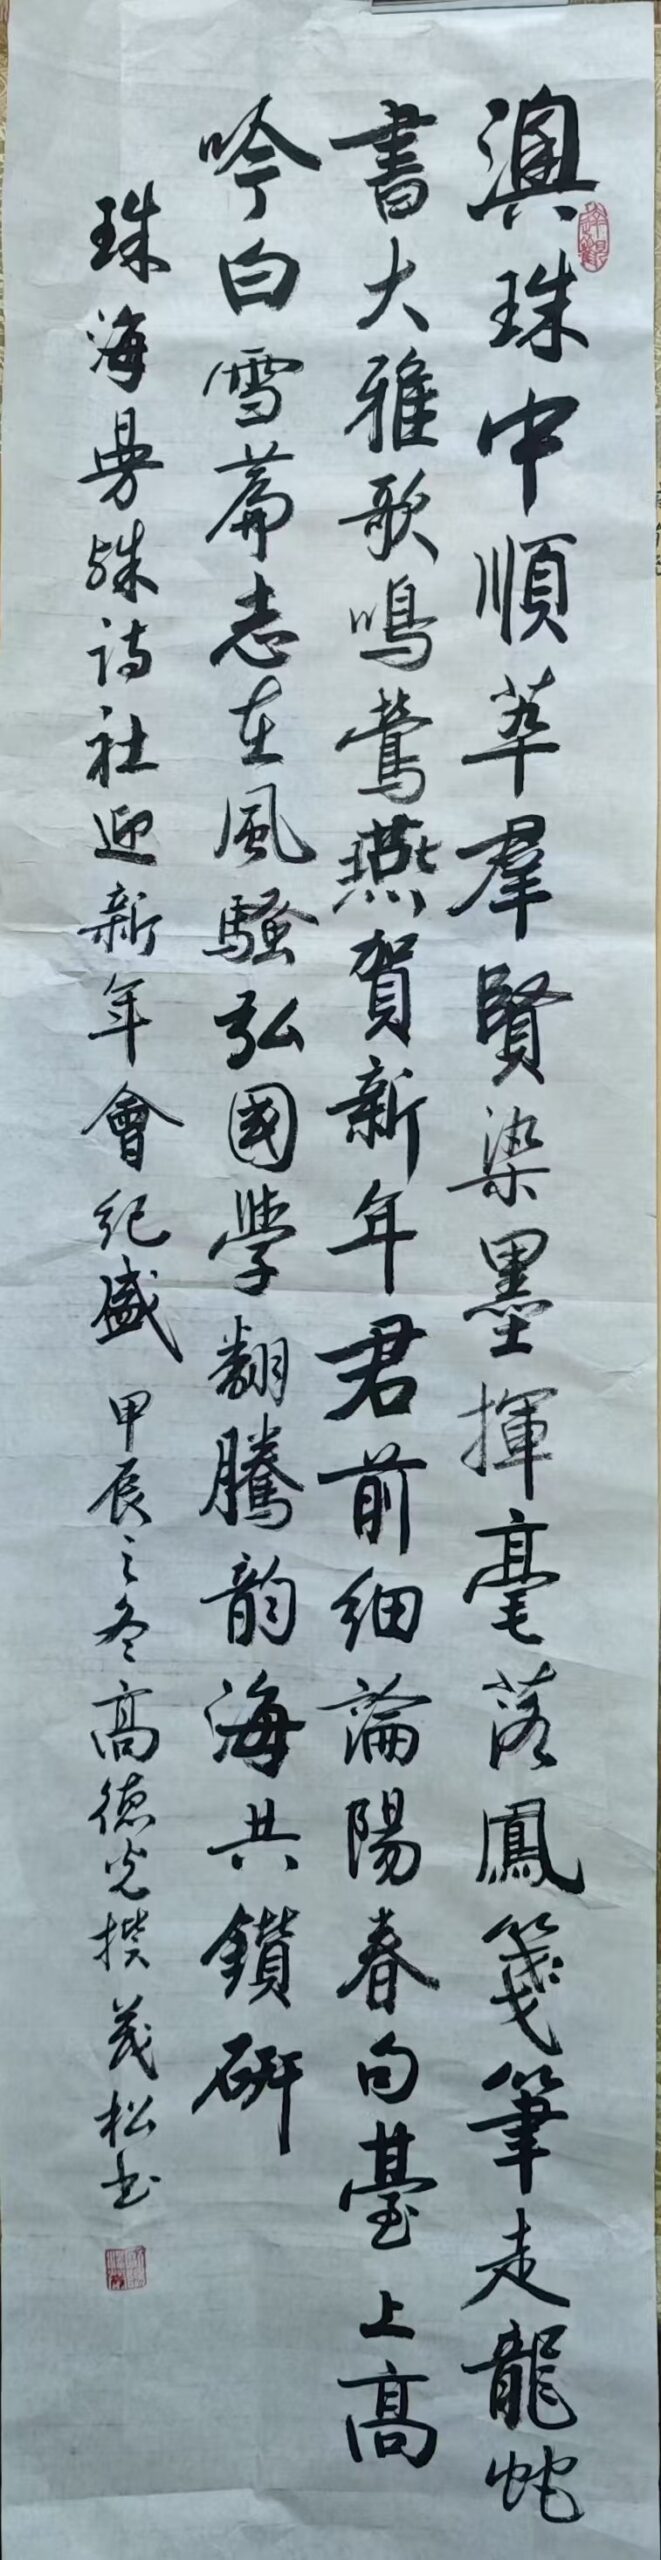 澳珠中順萃羣賢染墨揮毫落鳳箋筆走龍蛇
書大雅歌鳴鶯燕賀新年君前細論陽春句臺上高
吟白雪篇志在風騷弘國學翻騰韵海共鑽研
珠海曼殊詩社迎新年會紀盛 甲辰之冬高德光撰 茂松书